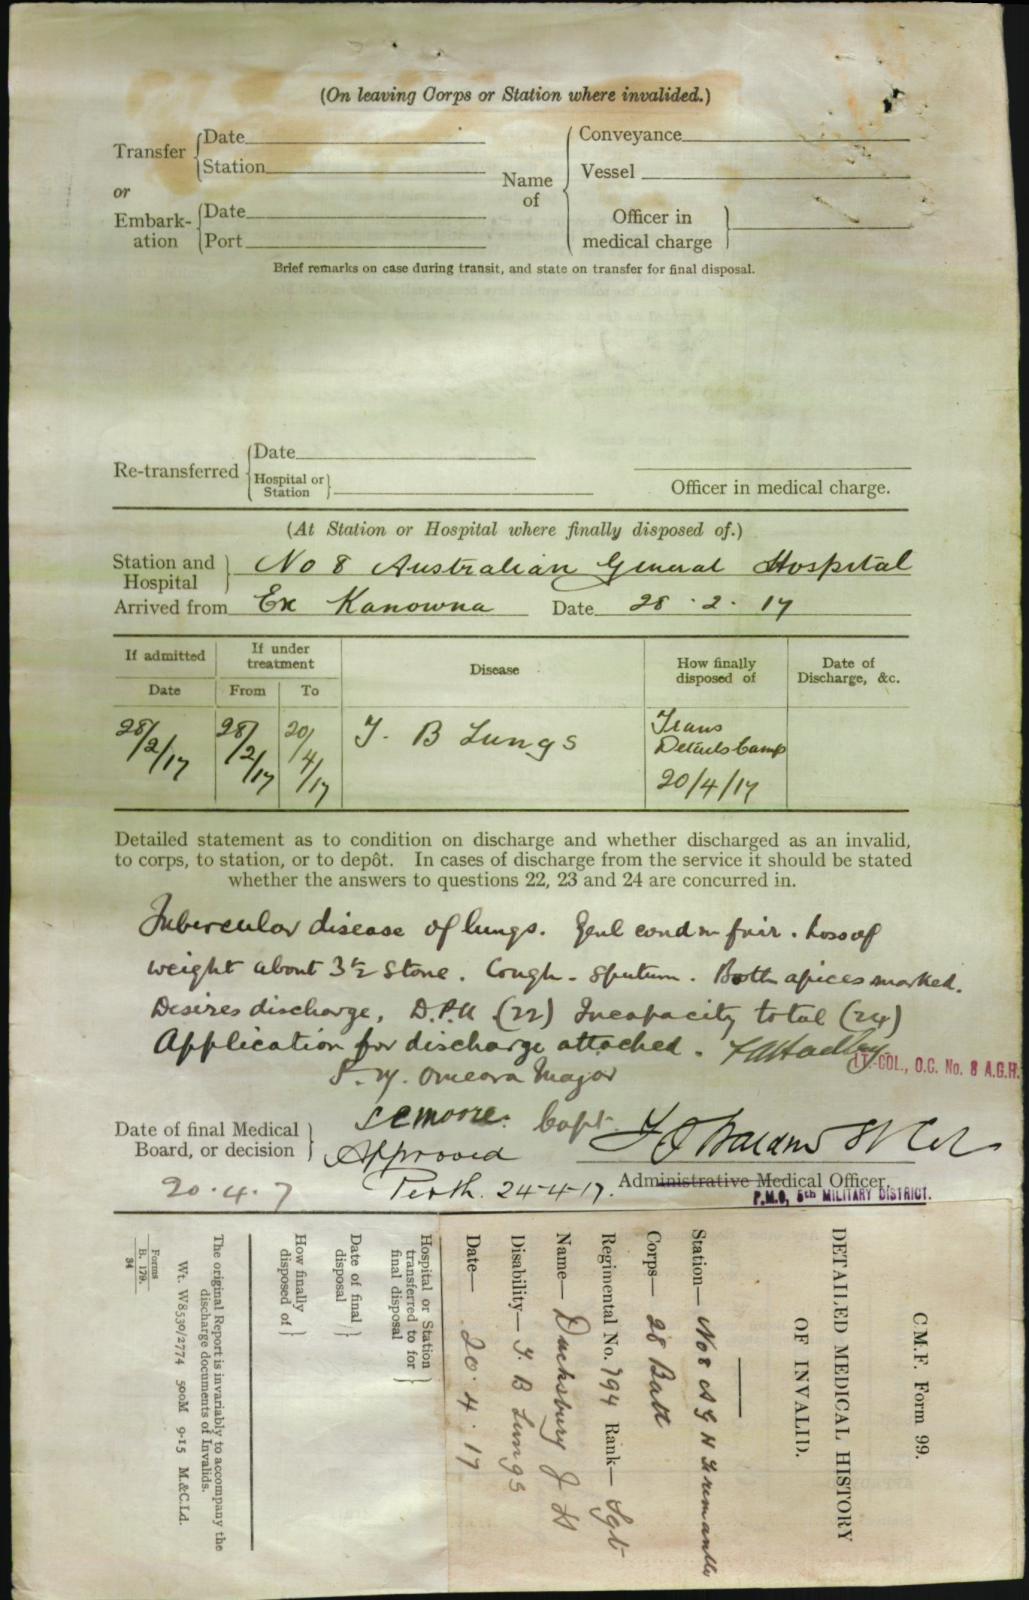 (On leaving Corps or Station where invalided.)
Transfer
Date
Station
or
Embark-
ation
Date
Port
Name
of
Conveyance
Vessel
Officer in
medical charge
Brief remarks on case during transit, and state on transfer for final disposal.
Re-transferred
Date
Hospital or
Station
Officer in medical charge.
(At Station or Hospital where finally disposed of.)
Station and
Hospital
No 8 Australian General Hospital
Arrived from Ex Kanowna Date 28.2.17
If admitted
If under
treatment
Disease
How finally
disposed of
Date of
Discharge, &c.
Date
From
To
28/2/17
28/2/17
20/4/17
T. B Lungs
Trans
Details Camp
20/4/17
Detailed statement as to condition on discharge and whether discharged as an invalid,
to corps, to station, or to depôt. In cases of discharge from the service it should be stated
whether the answers to questions 22, 23 and 24 are concurred in.
Tubercular disease of lungs. Genl condn fair. Loss of
weight about 3½ stone. Cough - sputum. Both apices marked.
Desires discharge, D.P.U (22) Incapacity total (24)
Application for discharge attached.
LT.-COL., O.C. No. 8 A.G.H.
Omeara Major
Moore. Capt.
Date of final Medical
Board, or decision
20.4.7
Approved
Perth. 24-4-17.
Administrative Medical Officer.
P.M.O, 5th MILITARY DISTRICT.
C.M.F. Form 99.
DETAILED MEDICAL HISTORY
OF INVALID.
Station— No 8 A G H Fremantle
Corps— 28 Batt
Regimental No. 794 Rank— Sgt
Name— Duchsbury J H
Disability— T. B Lungs
Date— 20.4.17
Hospital or Station
transferred to for
final disposal
Date of final
disposal
How finally
disposed of
The original Report is invariably to accompany the
discharge documents of Invalids.
Wt. W8530/2774 500M 9-15 M.&C.Ld.
Forms
B. 179.
34